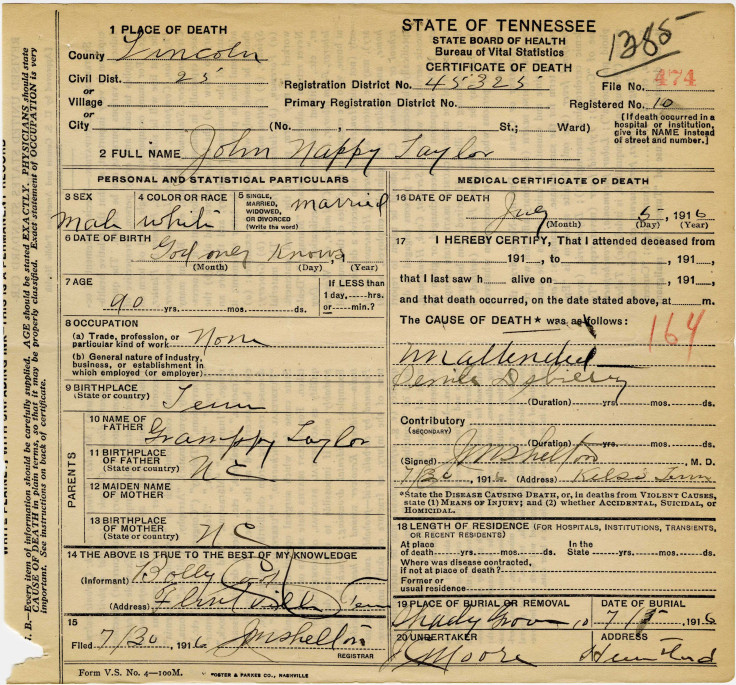 1 PLACE OF DEATH
County Lincoln
Civil Dist. 25
or
Village
or
City (No. , St.; Ward)
STATE OF TENNESSEE
STATE BOARD OF HEALTH
Bureau of Vital Statistics
CERTIFICATE OF DEATH
1285
Registration District No. 45325
File No. 474
Primary Registration District No.
Registered No. 10
[If death occurred in a
hospital or institution,
give its NAME instead
of street and number.]
2 FULL NAME John Nappy Taylor
PERSONAL AND STATISTICAL PARTICULARS
3 SEX
Male
4 COLOR OR RACE
white
5 SINGLE,
MARRIED,
WIDOWED,
OR DIVORCED
(Write the word)
married
6 DATE OF BIRTH
God only Knows
(Month) (Day) , (Year)
7 AGE
90 yrs. mos. ds.
If LESS than
1 day,----hrs.
or----min.?
8 OCCUPATION
(a) Trade, profession, or
particular kind of work None
(b) General nature of industry,
business, or establishment in
which employed (or employer)
9 BIRTHPLACE
(State or country)
Tenn
PARENTS
10 NAME OF
FATHER
Taylor
11 BIRTHPLACE
OF FATHER
(State or country)
NC
12 MAIDEN NAME
OF MOTHER
13 BIRTHPLACE
OF MOTHER
(State or country)
NC
14 THE ABOVE IS TRUE TO THE BEST OF MY KNOWLEDGE
(Informant)
(Address) Flintville Tenn
15
Filed 7/30, 1916 JM Shelton
REGISTRAR
MEDICAL CERTIFICATE OF DEATH
16 DATE OF DEATH
July 5, 1916
(Month) (Day) (Year)
17 I HEREBY CERTIFY, That I attended deceased from
191 , to , 191 ,
that I last saw h alive on , 191 ,
and that death occurred, on the date stated above, at m.
The CAUSE OF DEATH* was as follows:
164
unattended
Senile Debility
(Duration) yrs. mos. ds.
Contributory
(SECONDARY)
(Duration) yrs. mos. ds.
(Signed) JM Shelton, M. D.
7/30, 1916 (Address) Kelso Tenn
*State the DISEASE CAUSING DEATH, or, in deaths from VIOLENT CAUSES,
state (1) MEANS OF INJURY; and (2) whether ACCIDENTAL, SUICIDAL, or
HOMICIDAL.
18 LENGTH OF RESIDENCE (FOR HOSPITALS, INSTITUTIONS, TRANSIENTS,
OR RECENT RESIDENTS)
At place
of death yrs. mos. ds.
In the
State yrs. mos. ds.
Where was disease contracted,
if not at place of death?
Former or
usual residence
19 PLACE OF BURIAL OR REMOVAL
Shady Grove
DATE OF BURIAL
7/5, 1916
20 UNDERTAKER
Moore
ADDRESS
Form V.S. No. 4—100M.
FOSTER & PARKES CO., NASHVILLE
B.—Every item of information should be carefully supplied. AGE should be stated EXACTLY. PHYSICIANS should state
CAUSE OF DEATH in plain terms, so that it may be properly classified. Exact statement of OCCUPATION is very
important. See instructions on back of certificate.